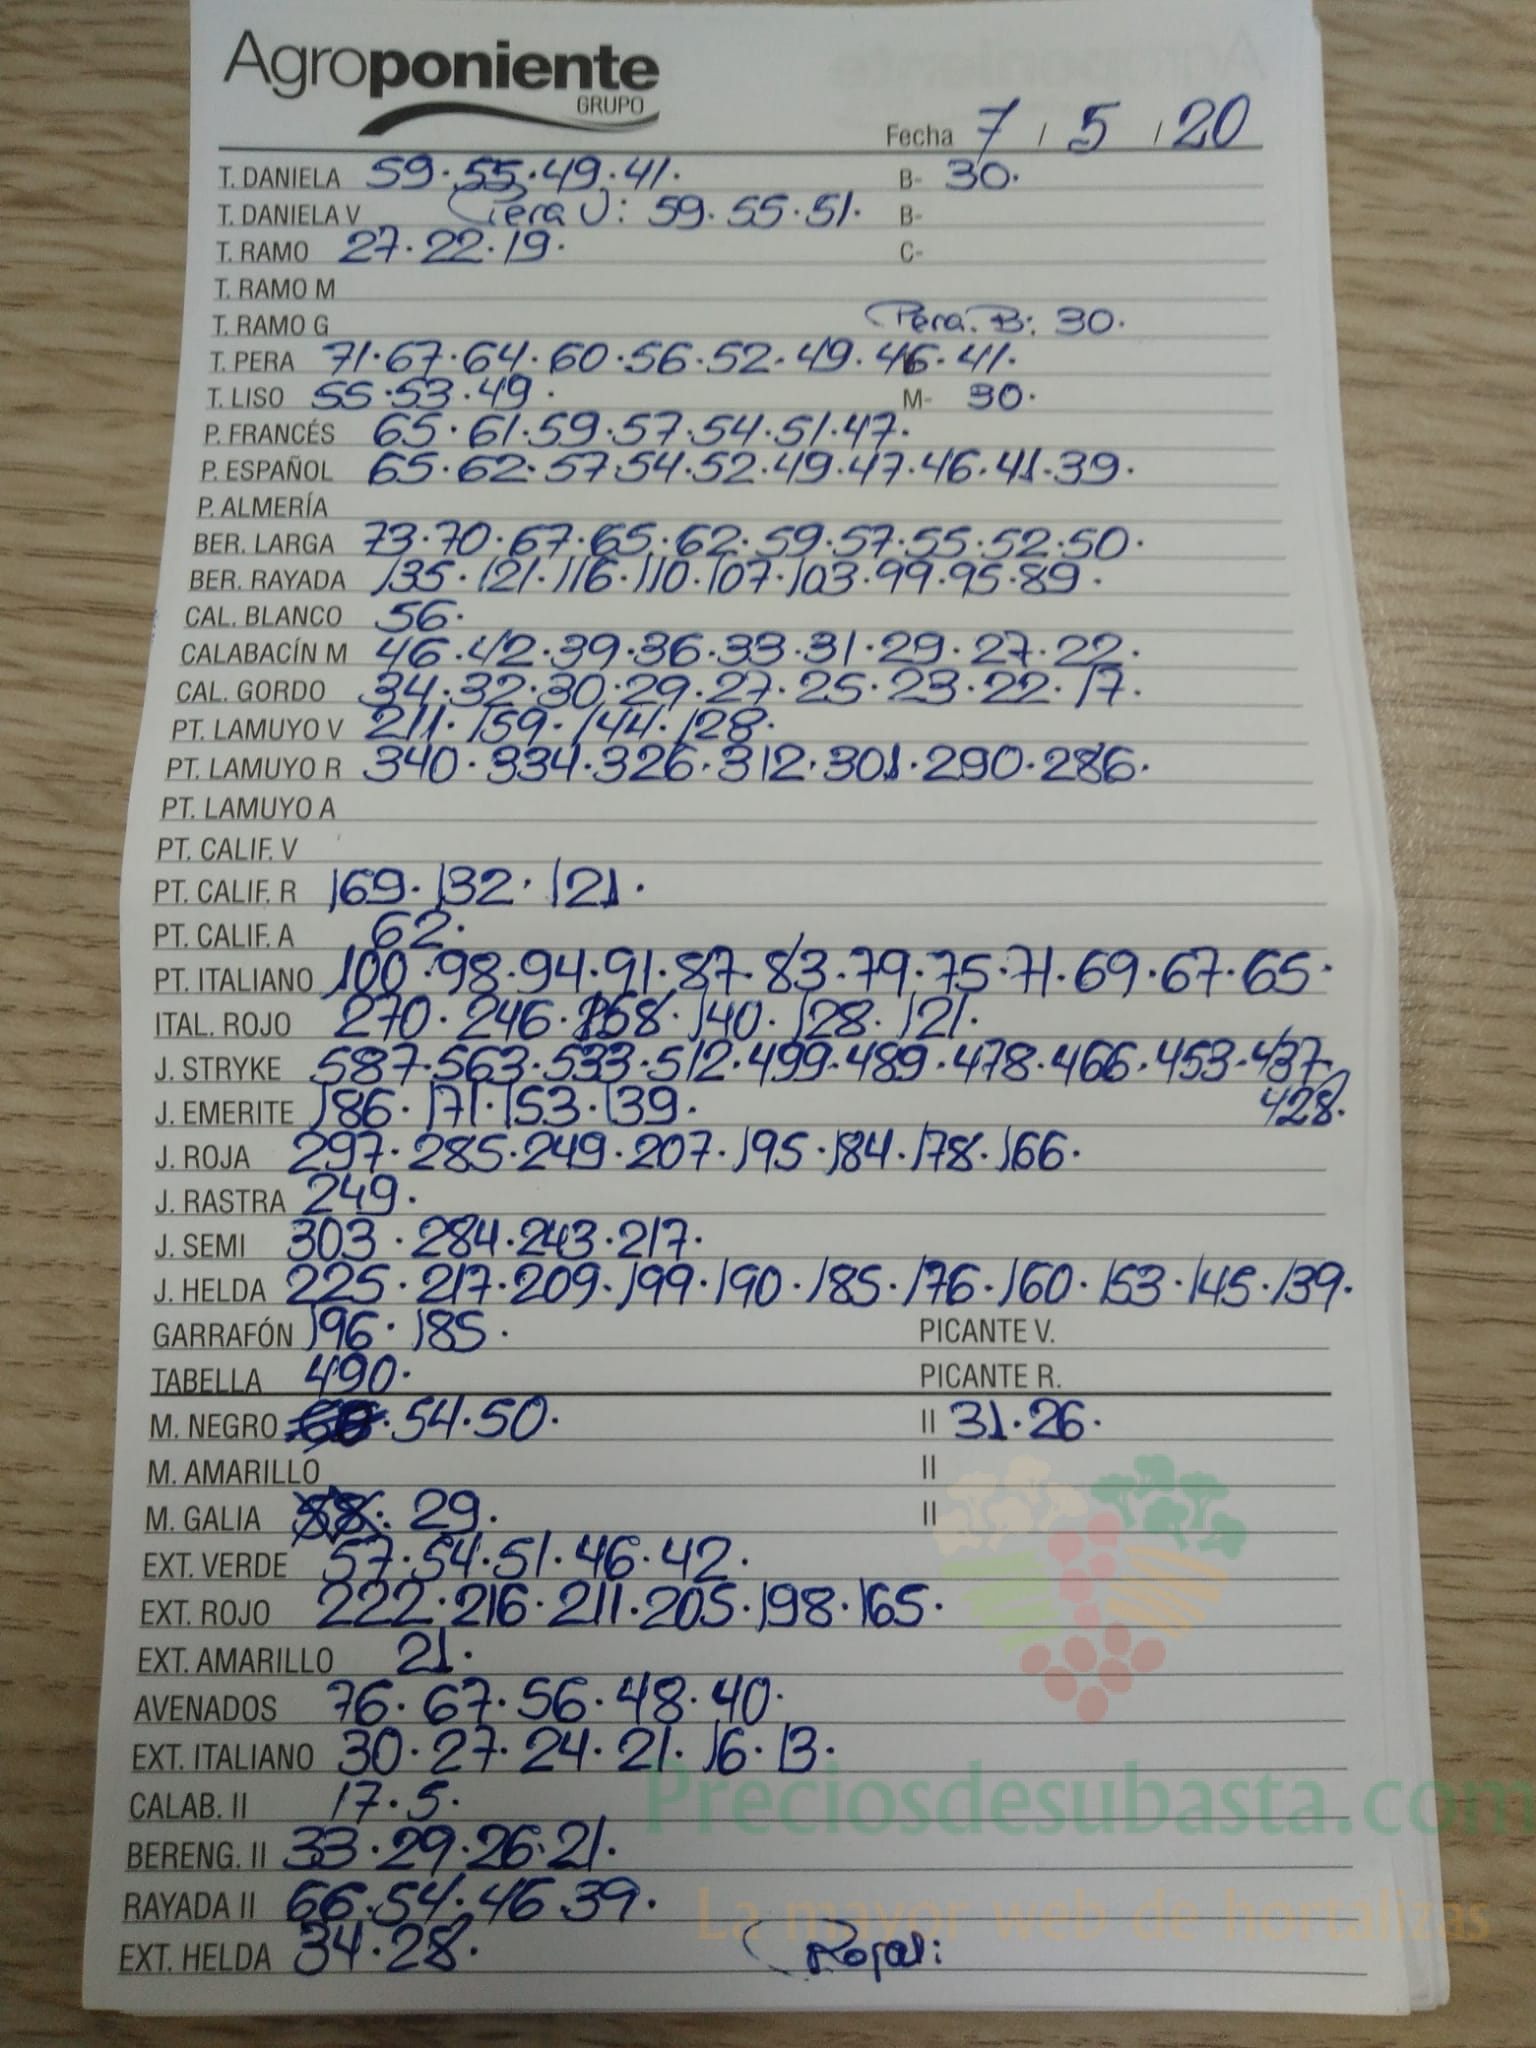 Agroponiente
GRUPO
Fecha 7 / 5 / 20
T. DANIELA 59. 55. 49. 41. B- 30.
T. DANIELA V Pera V: 59. 55. 51. B-
T. RAMO 27. 22. 19. C-
T. RAMO M
T. RAMO G Pera. B: 30.
T. PERA 71. 67. 64. 60. 56. 52. 49. 46. 41.
T. LISO 55. 53. 49. M- 30.
P. FRANCÉS 65. 61. 59. 57. 54. 51. 47.
P. ESPAÑOL 65. 62. 57. 54. 52. 49. 47. 46. 41. 39.
P. ALMERÍA
BER. LARGA 73. 70. 67. 65. 62. 59. 57. 55. 52. 50.
BER. RAYADA 135. 121. 116. 110. 107. 103. 99. 95. 89.
CAL. BLANCO 56.
CALABACÍN M 46. 42. 39. 36. 33. 31. 29. 27. 22.
CAL. GORDO 34. 32. 30. 29. 27. 25. 23. 22. 17.
PT. LAMUYO V 211. 159. 144. 128.
PT. LAMUYO R 340. 334. 326. 312. 301. 290. 286.
PT. LAMUYO A
PT. CALIF. V
PT. CALIF. R 169. 132. 121.
PT. CALIF. A 62.
PT. ITALIANO 100. 98. 94. 91. 87. 83. 79. 75. 71. 69. 67. 65.
ITAL. ROJO 270. 246. 168. 140. 128. 121.
J. STRYKE 587. 563. 533. 512. 499. 489. 478. 466. 453. 437.
J. EMERITE 186. 171. 153. 139. 428.
J. ROJA 297. 285. 249. 207. 195. 184. 178. 166.
J. RASTRA 249.
J. SEMI 303. 284. 243. 217.
J. HELDA 225. 217. 209. 199. 190. 185. 176. 160. 153. 145. 139.
GARRAFÓN 196. 185. PICANTE V.
TABELLA 490. PICANTE R.
M. NEGRO 54. 50. II 31. 26.
M. AMARILLO II
M. GALIA 29. II
EXT. VERDE 57. 54. 51. 46. 42.
EXT. ROJO 222. 216. 211. 205. 198. 165.
EXT. AMARILLO 21.
AVENADOS 76. 67. 56. 48. 40.
EXT. ITALIANO 30. 27. 24. 21. 16. 13.
Preciosdesubasta.com
CALAB. II 17. 5.
BERENG. II 33. 29. 26. 21.
RAYADA II 66. 54. 46. 39.
La mayor web de hortalizas
EXT. HELDA 34. 28.